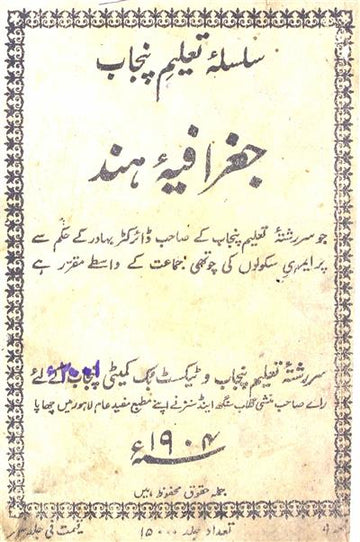 سلسلۂ تعلیم پنجاب
جغرافیۂ ہند
جو سررشتۂ تعلیم پنجاب کے صاحب ڈائرکٹر بہادر کے حکم سے
پرایمری سکولوں کی چوتھی جماعت کے واسطے مقرر ہے
سررشتۂ تعلیم پنجاب و ٹیکسٹ بک کمیٹی پنجاب کے لئے
راے صاحب منشی گلاب سنگھ اینڈ سنز نے اپنے مطبع مفید عام لاہور میں چھاپا
سنہ ۱۹۰۴ء
جملہ حقوق محفوظ ہیں
تعداد جلد ۱۵۰۰۰
قیمت فی جلد